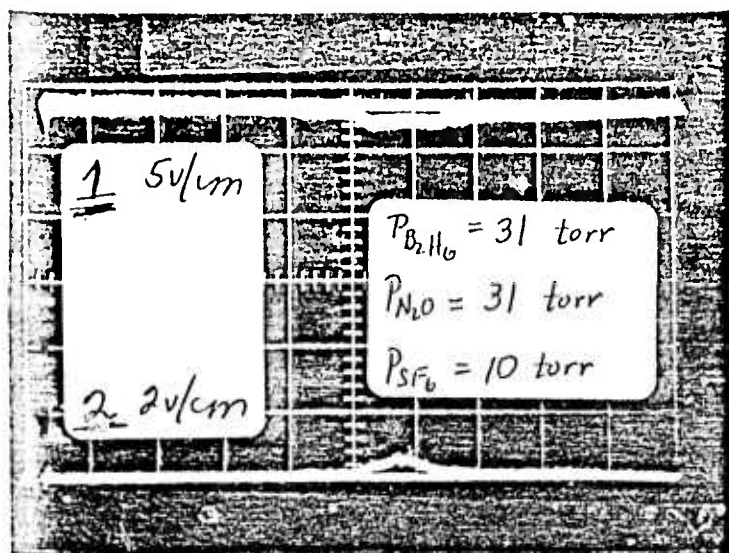 1 5v/cm
2 2v/cm
P_B₂H₆ = 31 torr
P_N₂O = 31 torr
P_SF₆ = 10 torr